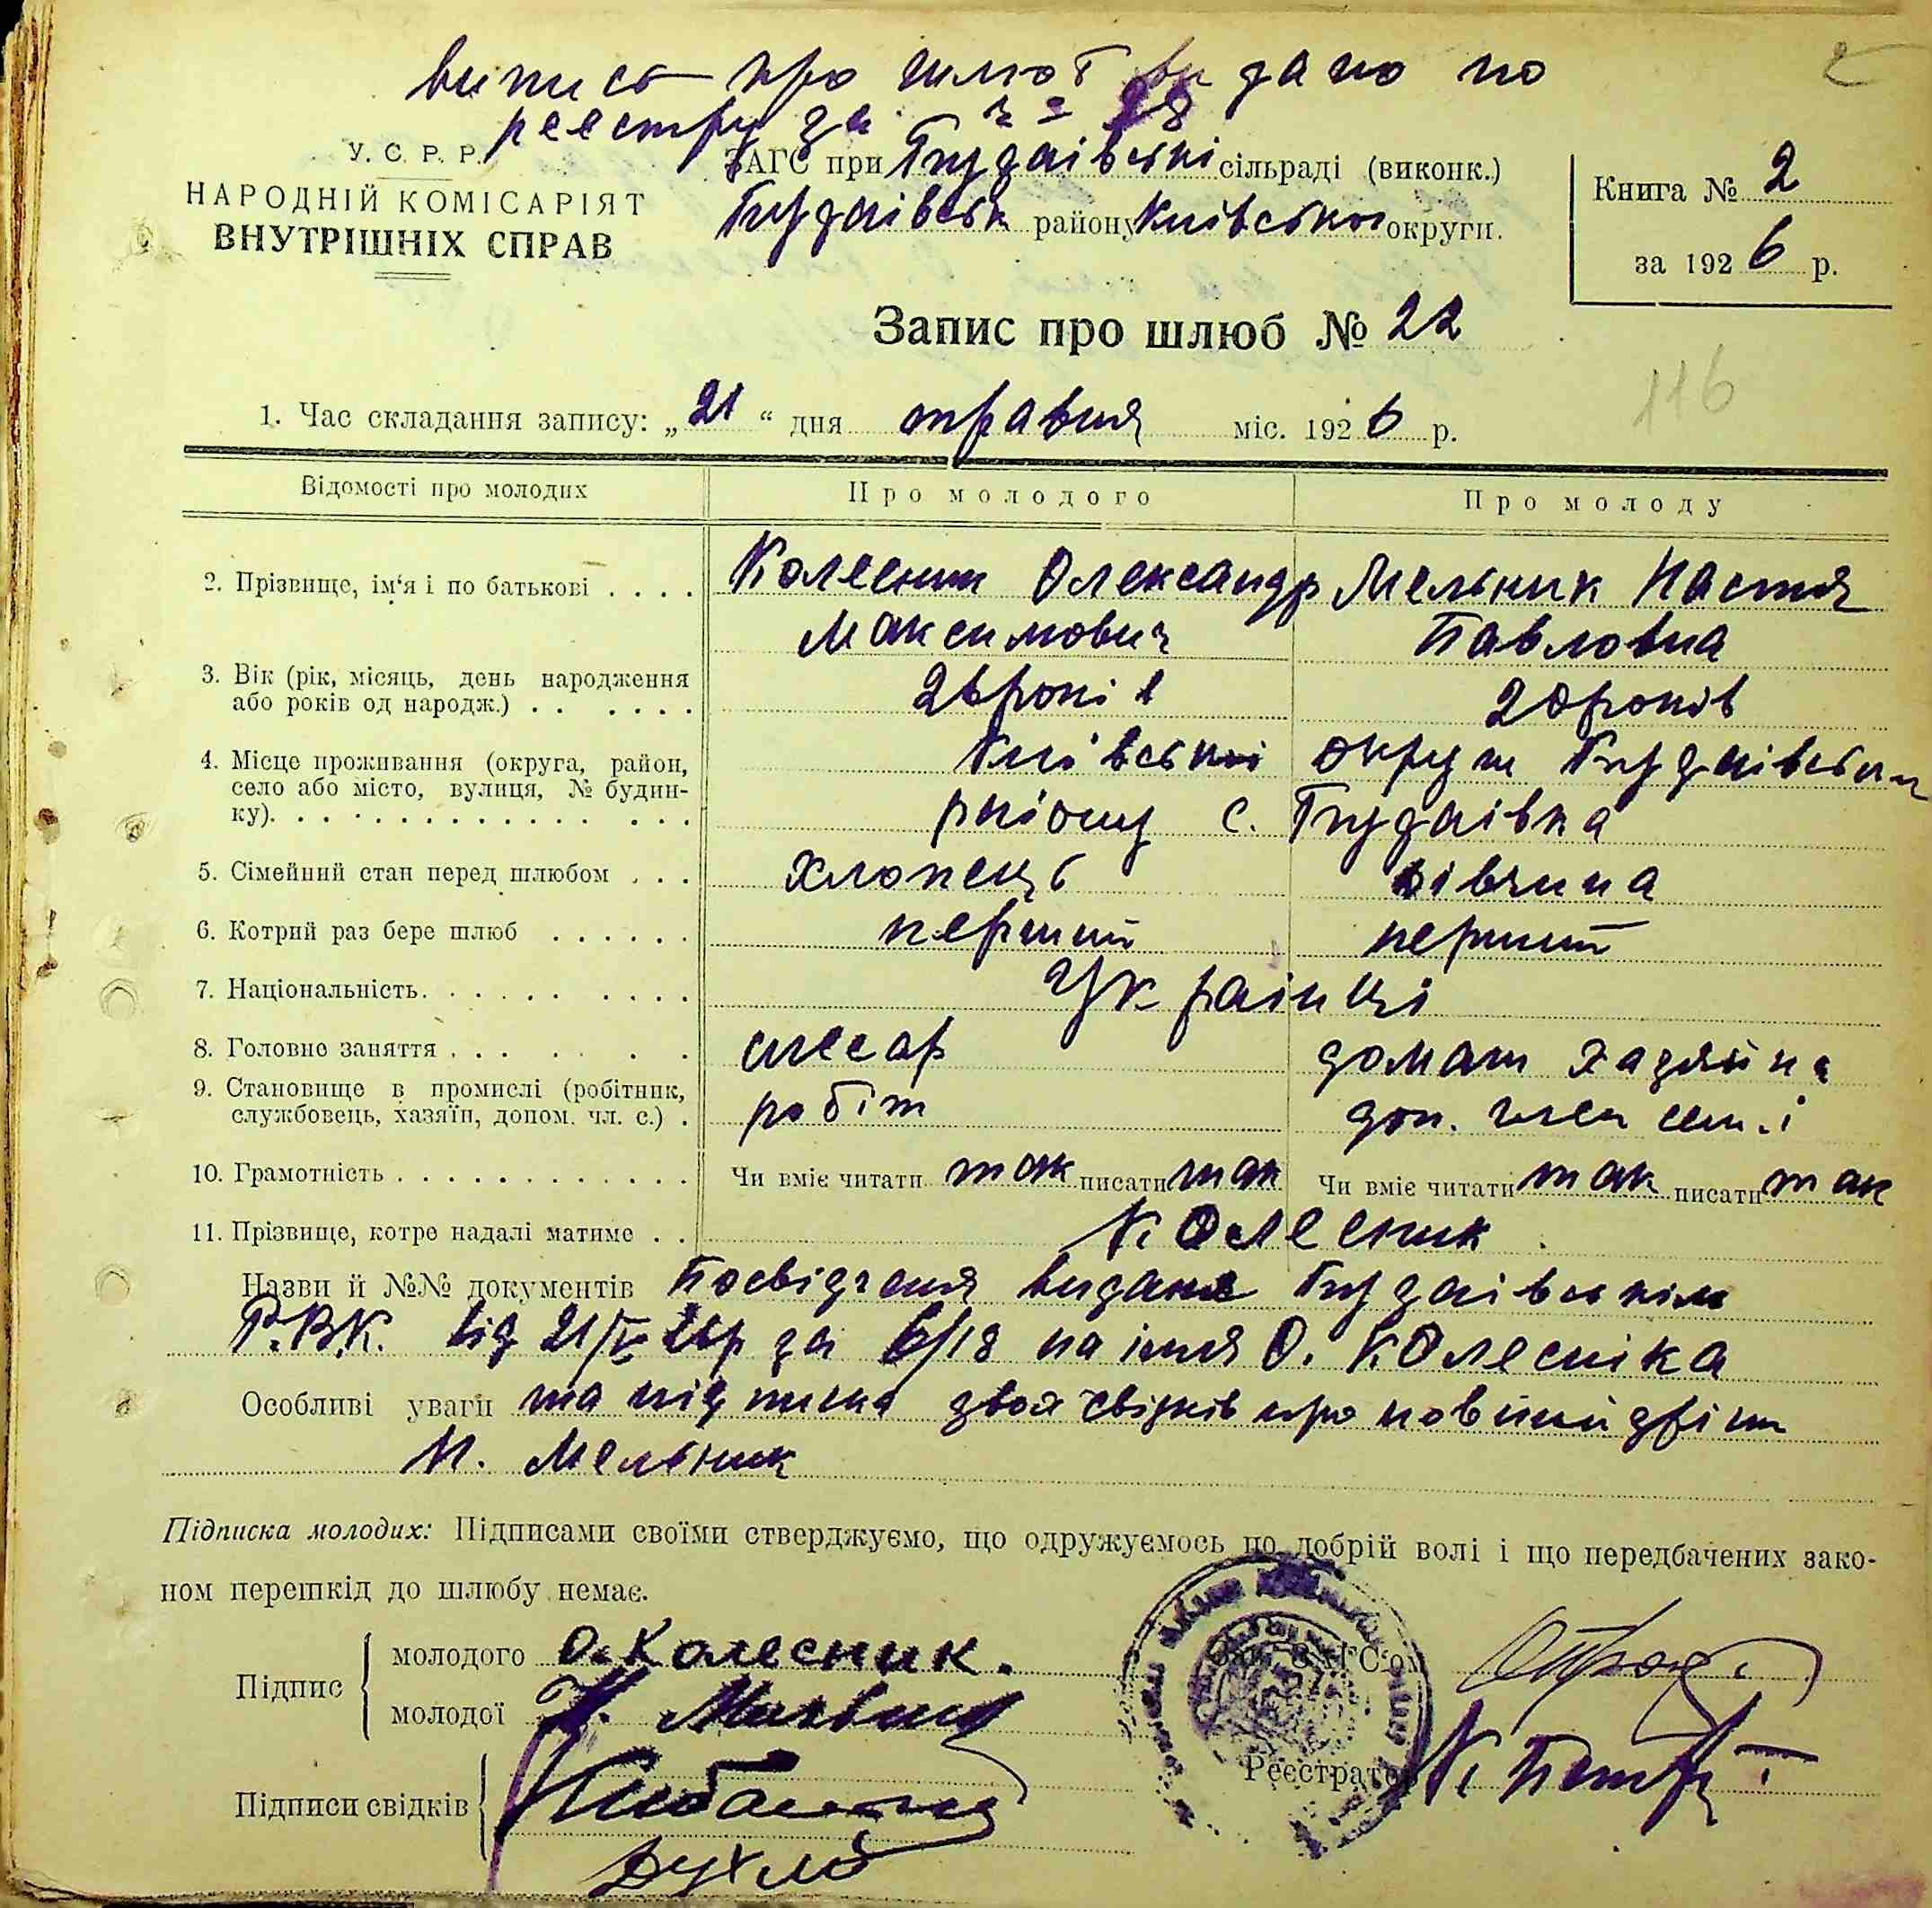 випись про шлюб видано по
реестру за № 28
У. С. Р. Р.
НАРОДНІЙ КОМІСАРІЯТ
ВНУТРІШНІХ СПРАВ
ЗАГС при Будаівські сільраді (виконк.)
Будаівськ району Київської округи.
Книга № 2
за 1926 р.
Запис про шлюб № 22
116
1. Час складання запису: „21“ дня травня міс. 1926 р.
Відомості про молодих Про молодого Про молоду
2. Прізвище, ім‘я і по батькові . . . . Колесник Олександр Мельник Настя
Максимович Павловна
3. Вік (рік, місяць, день народження 26 років 20 років
або років од народж.) . . . . . .
4. Місце проживання (округа, район, Київськоі округи Будаівськ
село або місто, вулиця, № будин-
ку). . . . . . . . . . . . . . . . району с. Будаівка
5. Сімейний стан перед шлюбом . . . хлопець дівчина
6. Котрий раз бере шлюб . . . . . . перший перший
7. Національність. . . . . . . . . . Украінці
8. Головно заняття . . . . . . . слесар домаш хазяйка
9. Становище в промислі (робітник, робіт доп. член сем.і
службовець, хазяїн, допом. чл. с.) .
10. Грамотність . . . . . . . . . . . . . Чи вміє читати так писати так Чи вміє читати так писати так
11. Прізвище, котре надалі матиме . . Колесник
Назви й №№ документів Посвідченя видане Будаівськім
Р.В.К. від 21/V 26р за 6/18 на імя О. Колесніка
Особливі уваги та підписка двох свідків про
Н. Мельник
Підписка молодих: Підписами своїми стверджуємо, що одружуємось по добрій волі і що передбачених зако-
ном перешкід до шлюбу немає.
Підпис молодого О. Колесник.
молодої Н. Мельник
Зав. ЗАГС'ом
Реєстратор
Підписи свідків